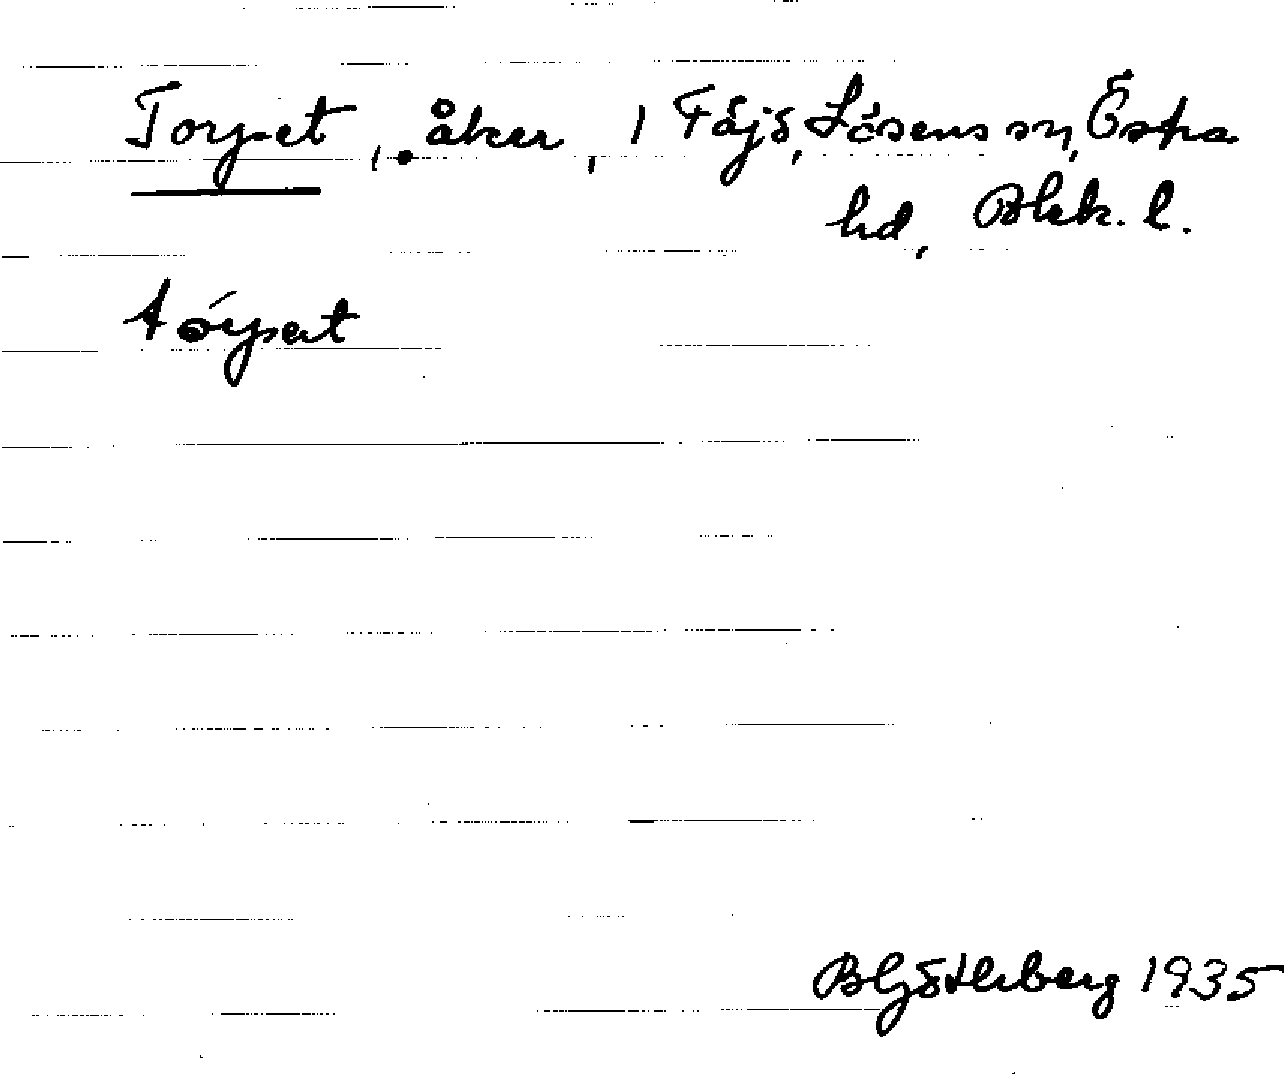 Torpet, åker, i Fäjö, Lösens sn, Östra
hd, Blek. l.
tórpet
B Götlerberg 1935